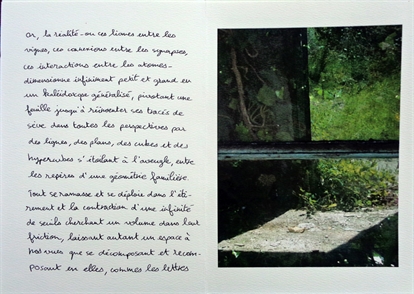 Or, la réalité - ou ces lianes entre les
vignes, ces connexions entre les synapses,
ces interactions entre les atomes -
dimensionne infiniment petit et grand en
un kaléidoscope généralisé, pivotant une
feuille jusqu'à réinventer ses tracés de
sève dans toutes les perspectives par
des lignes, des plans, des cubes et des
hypercubes s'étalant à l'aveugle, entre
les repères d'une géométrie familière.
Tout se ramasse et se déploie dans l'éti-
rement et la contraction d'une infinité
de seuils cherchant un volume dans leur
friction, laissant autant un espace à
nos vues que se décomposant et recom-
posant en elles, comme les lettres